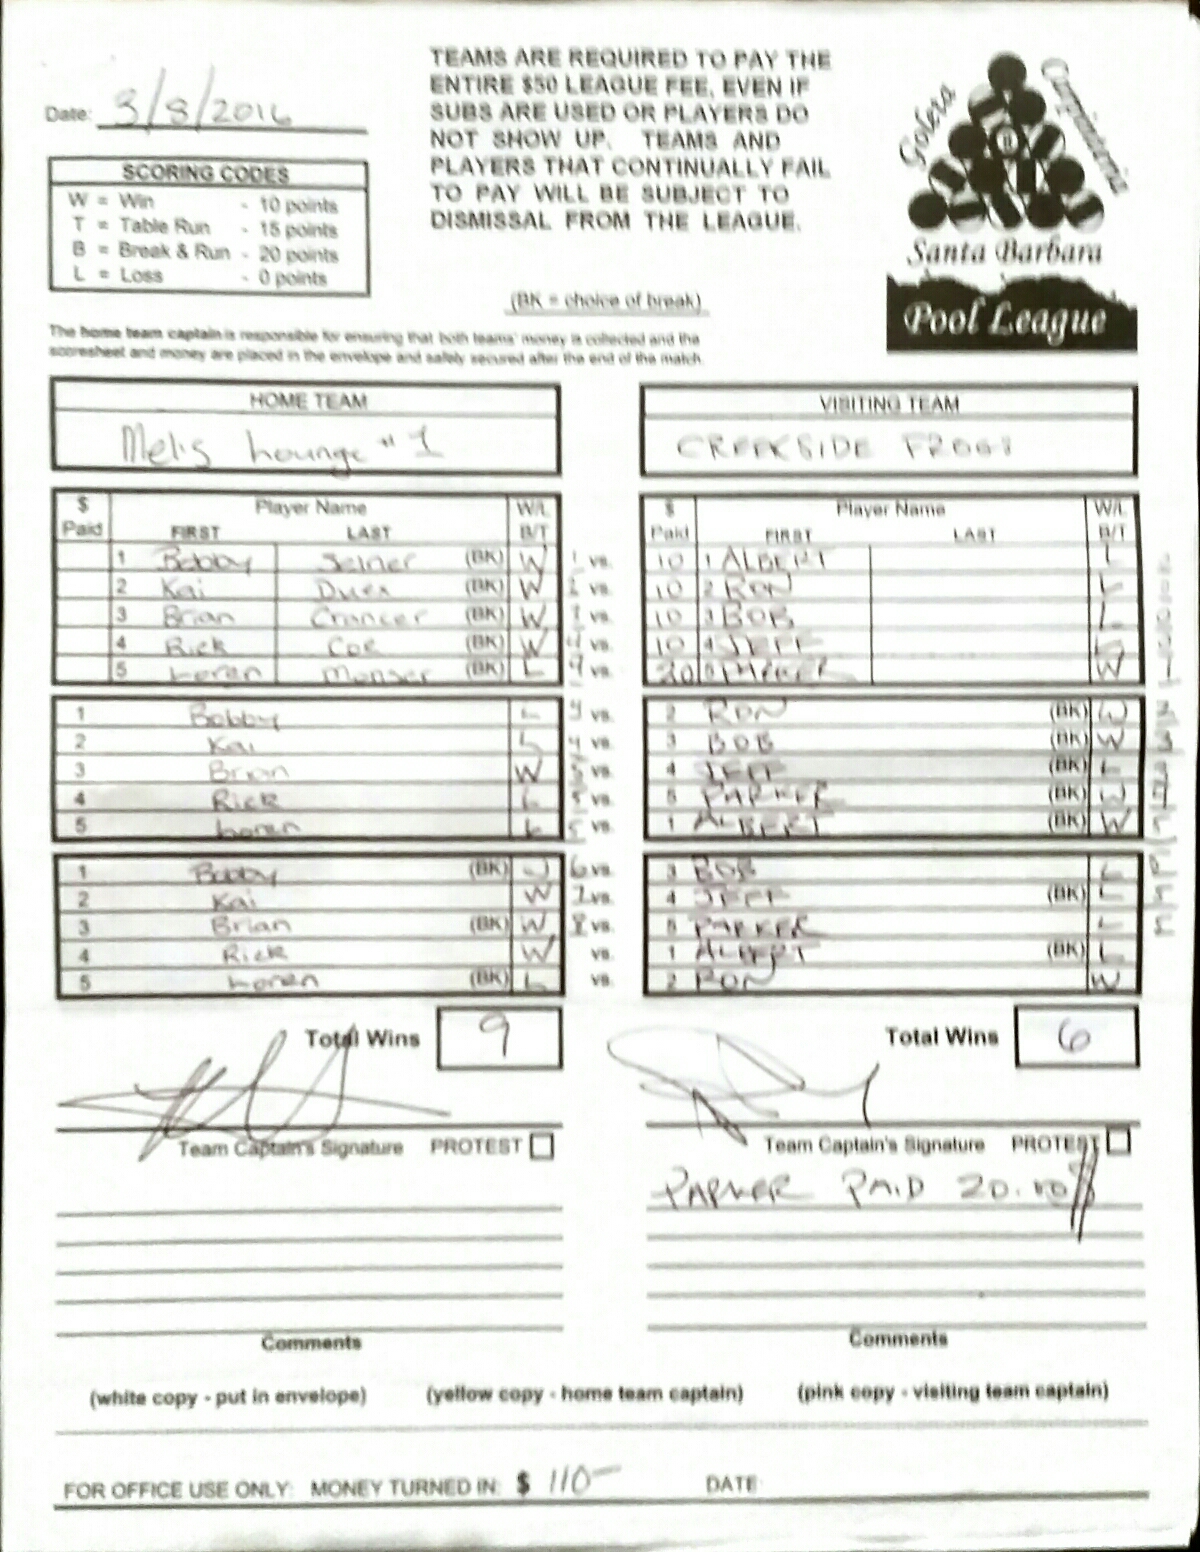 Date: 3/8/2016
TEAMS ARE REQUIRED TO PAY THE
ENTIRE $50 LEAGUE FEE, EVEN IF
SUBS ARE USED OR PLAYERS DO
NOT SHOW UP. TEAMS AND
PLAYERS THAT CONTINUALLY FAIL
TO PAY WILL BE SUBJECT TO
DISMISSAL FROM THE LEAGUE.
Goleta Carpinteria
8
Santa Barbara
Pool League
SCORING CODES
W = Win - 10 points
T = Table Run - 15 points
B = Break & Run - 20 points
L = Loss - 0 points
(BK = choice of break)
The home team captain is responsible for ensuring that both teams' money is collected and the
scoresheet and money are placed in the envelope and safely secured after the end of the match.
HOME TEAM
Mel's Lounge #1
VISITING TEAM
CREEKSIDE FROGS
$ Paid Player Name FIRST LAST W/L B/T
$ Paid Player Name FIRST LAST W/L B/T
1 Bobby (BK) W 1 vs. 10 1 ALBERT L
2 Kai Duex (BK) W 2 vs. 10 2 RON L
3 Brian (BK) W 3 vs. 10 3 BOB L
4 Rick Coe (BK) W 4 vs. 10 4 JEFF L
5 Loren (BK) L 4 vs. 20 5 PARKER W 1
1 Bobby L 4 vs. 2 RON (BK) W 2
2 Kai L 4 vs. 3 BOB (BK) W 3
3 Brian W 5 vs. 4 JEFF (BK) L
4 Rick L 5 vs. 5 PARKER (BK) W 4
5 Loren L 5 vs. 1 ALBERT (BK) W 5
1 Bobby (BK) W 6 vs. 3 BOB L
2 Kai W 7 vs. 4 JEFF (BK) L 5
3 Brian (BK) W 8 vs. 5 PARKER L
4 Rick W vs. 1 ALBERT (BK) L
5 Loren (BK) L vs. 2 RON W
Total Wins 9
Total Wins 6
Team Captain's Signature PROTEST
Team Captain's Signature PROTEST
PARKER PAID 20.00
Comments
Comments
(white copy - put in envelope) (yellow copy - home team captain) (pink copy - visiting team captain)
FOR OFFICE USE ONLY: MONEY TURNED IN: $ 110- DATE